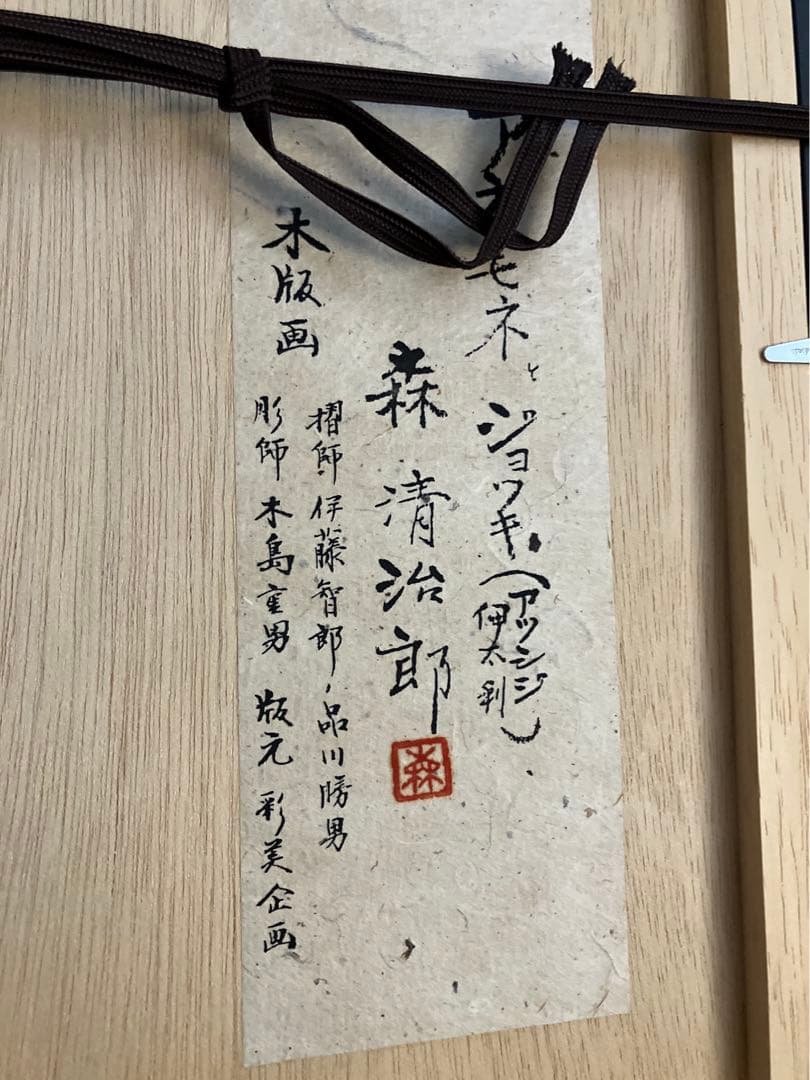 アネモネとジョッキ、(アッシジ)
伊太利
森 清治郎
森
木版画
摺師 伊藤智郎、品川勝男
彫師 木島重男 版元 彩美企画